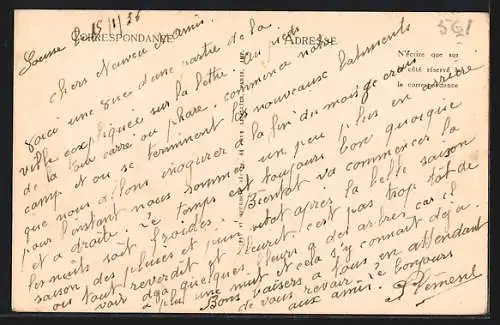 Sousse le 15/1/36
CORRESPONDANCE
ADRESSE
N'écrire que sur
le côté réservé à
la correspondance
561
chers Neveu et amis.
Voici une vue d'une partie de la
ville expliquée sur la lettre. Au pieds
de la tour carré ou phare. commence notre
camp et ou se terminent les nouveaux batiments
que nous allons inogurer a la fin du mois je crois
pour l'instant nous sommes un peu plus en arrière
et a droite. Le temps est toujours bon quoique
les nuits soit froides. Bientot va commencer la
saison des pluies et puis sitot apres la belle saison
ou tout reverdit et fleurit c'est pas trop tôt de
voir déja quelques fleurs a des arbres car il
a plu une nuit et cela s'y connait déja.
Bons baisers a tous en attendant
de vous revoir. Le bonjour
aux amis.
Clément